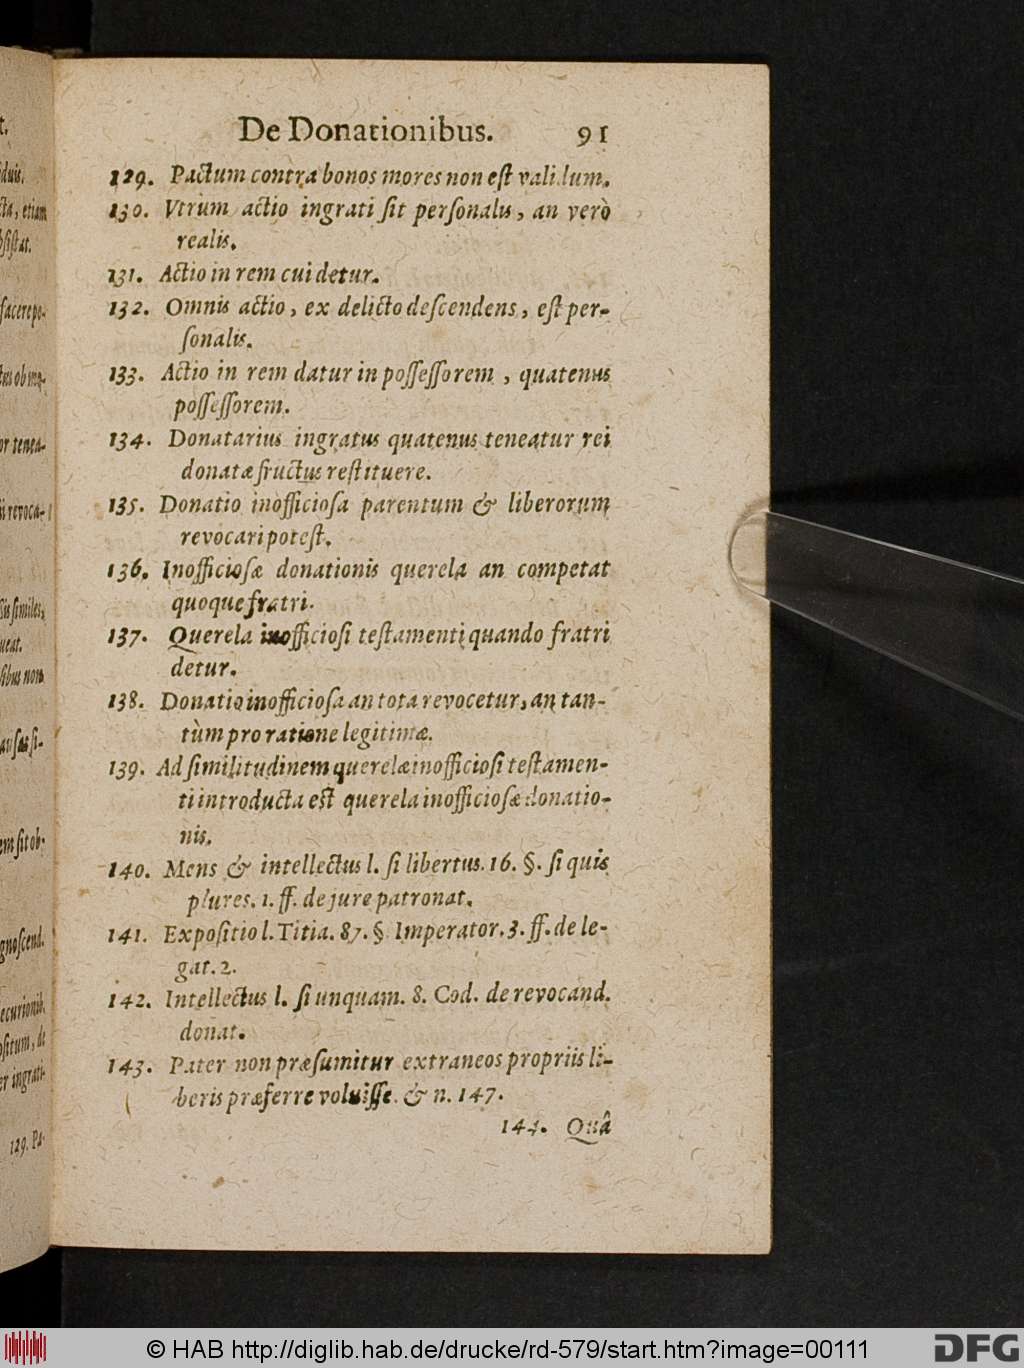 De Donationibus. 91
129. Pactum contra bonos mores non est validum.
130. Vtrum actio ingrati sit personalis, an verò
realis.
131. Actio in rem cui detur.
132. Omnis actio, ex delicto descendens, est per-
sonalis.
133. Actio in rem datur in possessorem, quatenus
possessorem.
134. Donatarius ingratus quatenus teneatur rei
donatæ fructus restituere.
135. Donatio inofficiosa parentum & liberorum
revocari potest.
136. Inofficiosæ donationis querela an competat
quoque fratri.
137. Querela inofficiosi testamenti quando fratri
detur.
138. Donatio inofficiosa an tota revocetur, an tan-
tùm pro ratione legitimæ.
139. Ad similitudinem querelæ inofficiosi testamen-
ti introducta est querela inofficiosæ donatio-
nis.
140. Mens & intellectus l. si libertus. 16. §. si quis
plures. 1. ff. de jure patronat.
141. Expositio l. Titia. 87. § Imperator. 3. ff. de le-
gat. 2.
142. Intellectus l. si unquam. 8. Cod. de revocand.
donat.
143. Pater non præsumitur extraneos propriis li-
beris præferre voluisse. & n. 147.
144. Quâ
© HAB http://diglib.hab.de/drucke/rd-579/start.htm?image=00111
DFG